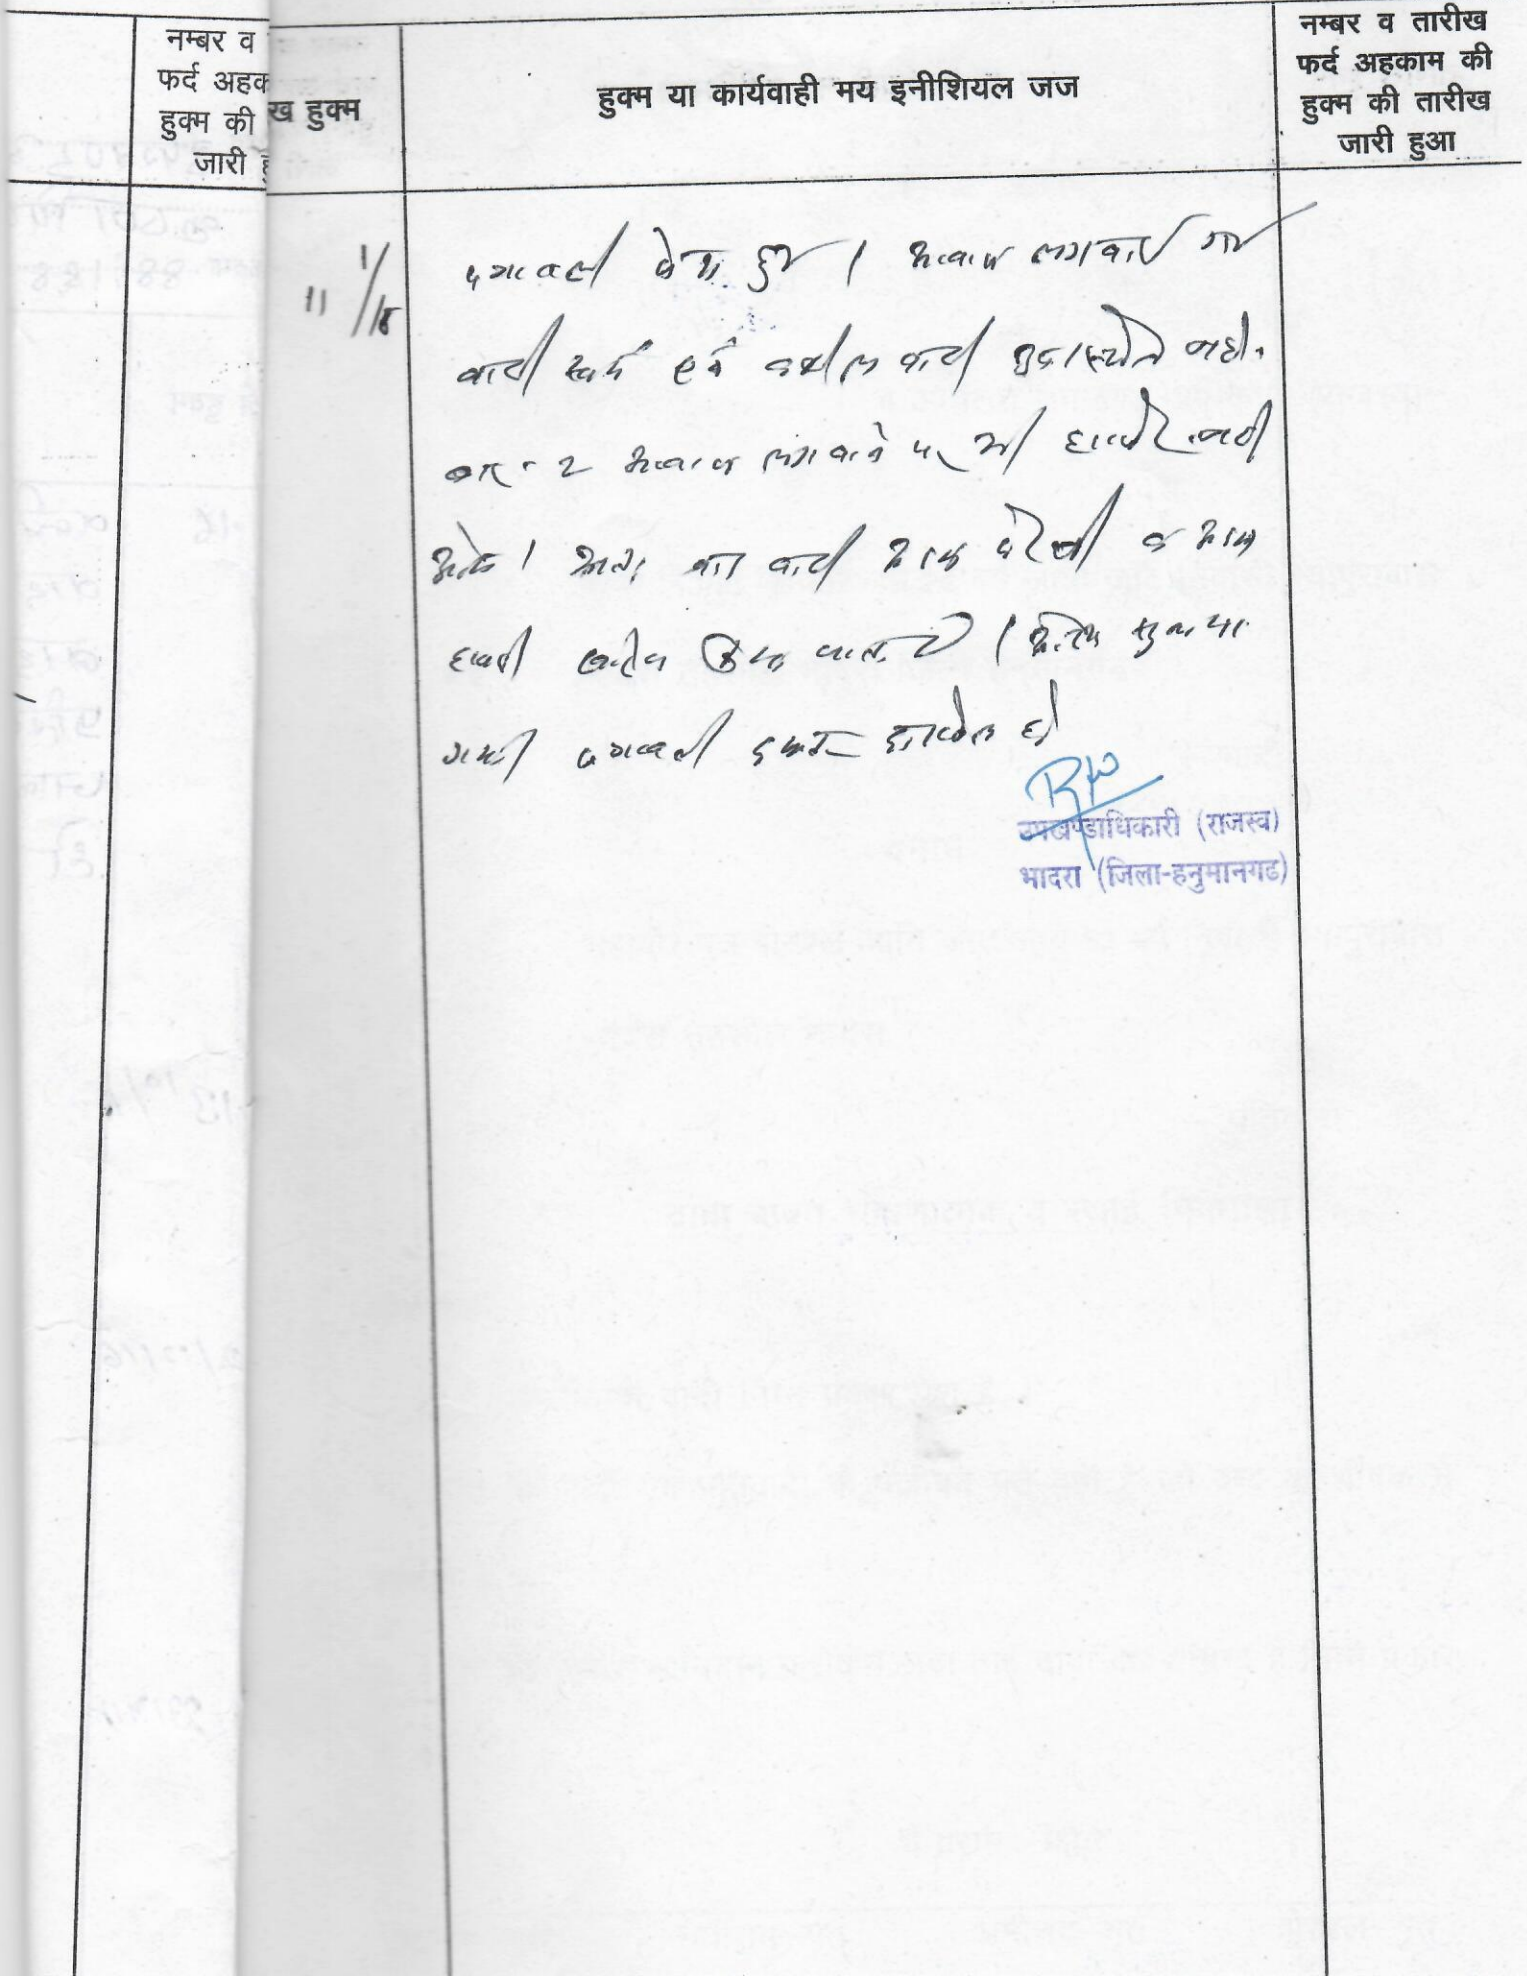 नम्बर व
फर्द अहक
हुक्म की
जारी ह
ख हुक्म
हुक्म या कार्यवाही मय इनीशियल जज
नम्बर व तारीख
फर्द अहकाम की
हुक्म की तारीख
जारी हुआ
11/1/18
पत्रावली पेश हुई। आवाज लगवाई गई
वादी स्वयं एवं वकील वादी उपस्थित नहीं।
बार-2 आवाज लगवाने पर भी हाजिर नहीं
आये। अतः वाद वादी अदम पैरवी व अदम
हाजरी खारिज किया जाता है। आदेश सुनाया
गया। पत्रावली दफ्तर दाखिल हो
उपखण्डाधिकारी (राजस्व)
भादरा (जिला-हनुमानगढ)